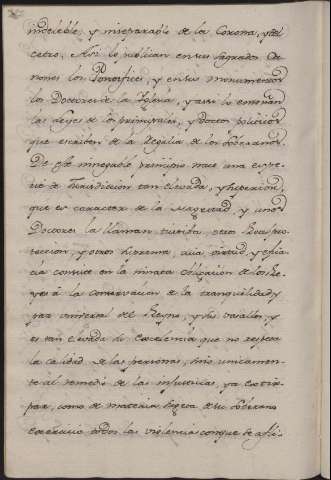 indeleble, y inseparable de la Corona, y del
cetro. Asi lo publican en sus sagrados Ca-
nones los Pontifices, y en sus monumentos
los Doctores de la Yglesia, y asi lo enseñan
las leyes de los principales, y doctos politicos
que escriben de la Regalia de los Soberanos.
De este innegable principio nace una espe-
cie de Jurisdiccion tan elevada, y superior,
que es caracter de la Magestad, y unos
Doctores la llaman tuitiva, otros Prac pro-
teccion, y otros suprema, cuia virtud, y efica-
cia consiste en la innata obligacion de los Re-
yes á la conservacion de la tranquilidad, y
paz universal del Reyno, y sus vasallos, y
es tan elevada su Excelencia que no respeta
la calidad de las personas, sino unicamen-
te al remedio de las injusticias, ya extir-
par, como de materia propia de su soberano
exercicio todas las violencias con que se afli-